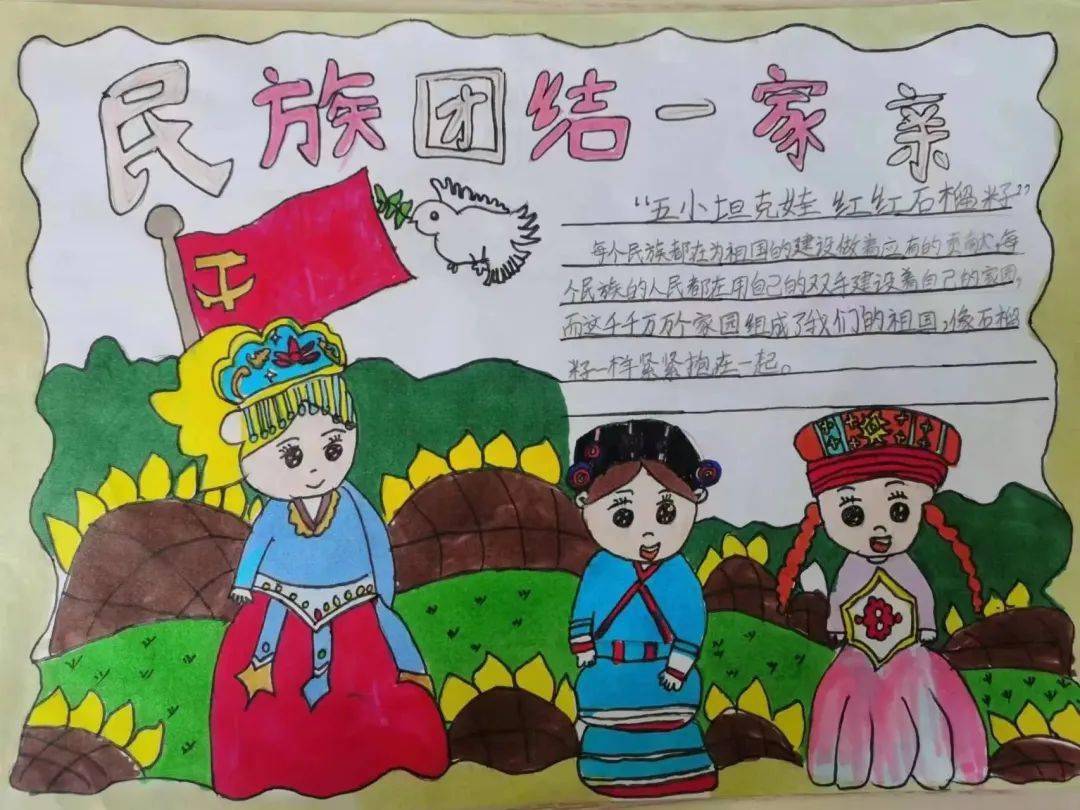 民族团结一家亲
“五小坦克娃 红红石榴籽”
每个民族都在为祖国的建设做着应有的贡献，每
个民族的人民都在用自己的双手建设着自己的家园，
而这千千万万个家园组成了我们的祖国，像石榴
籽一样紧紧抱在一起。